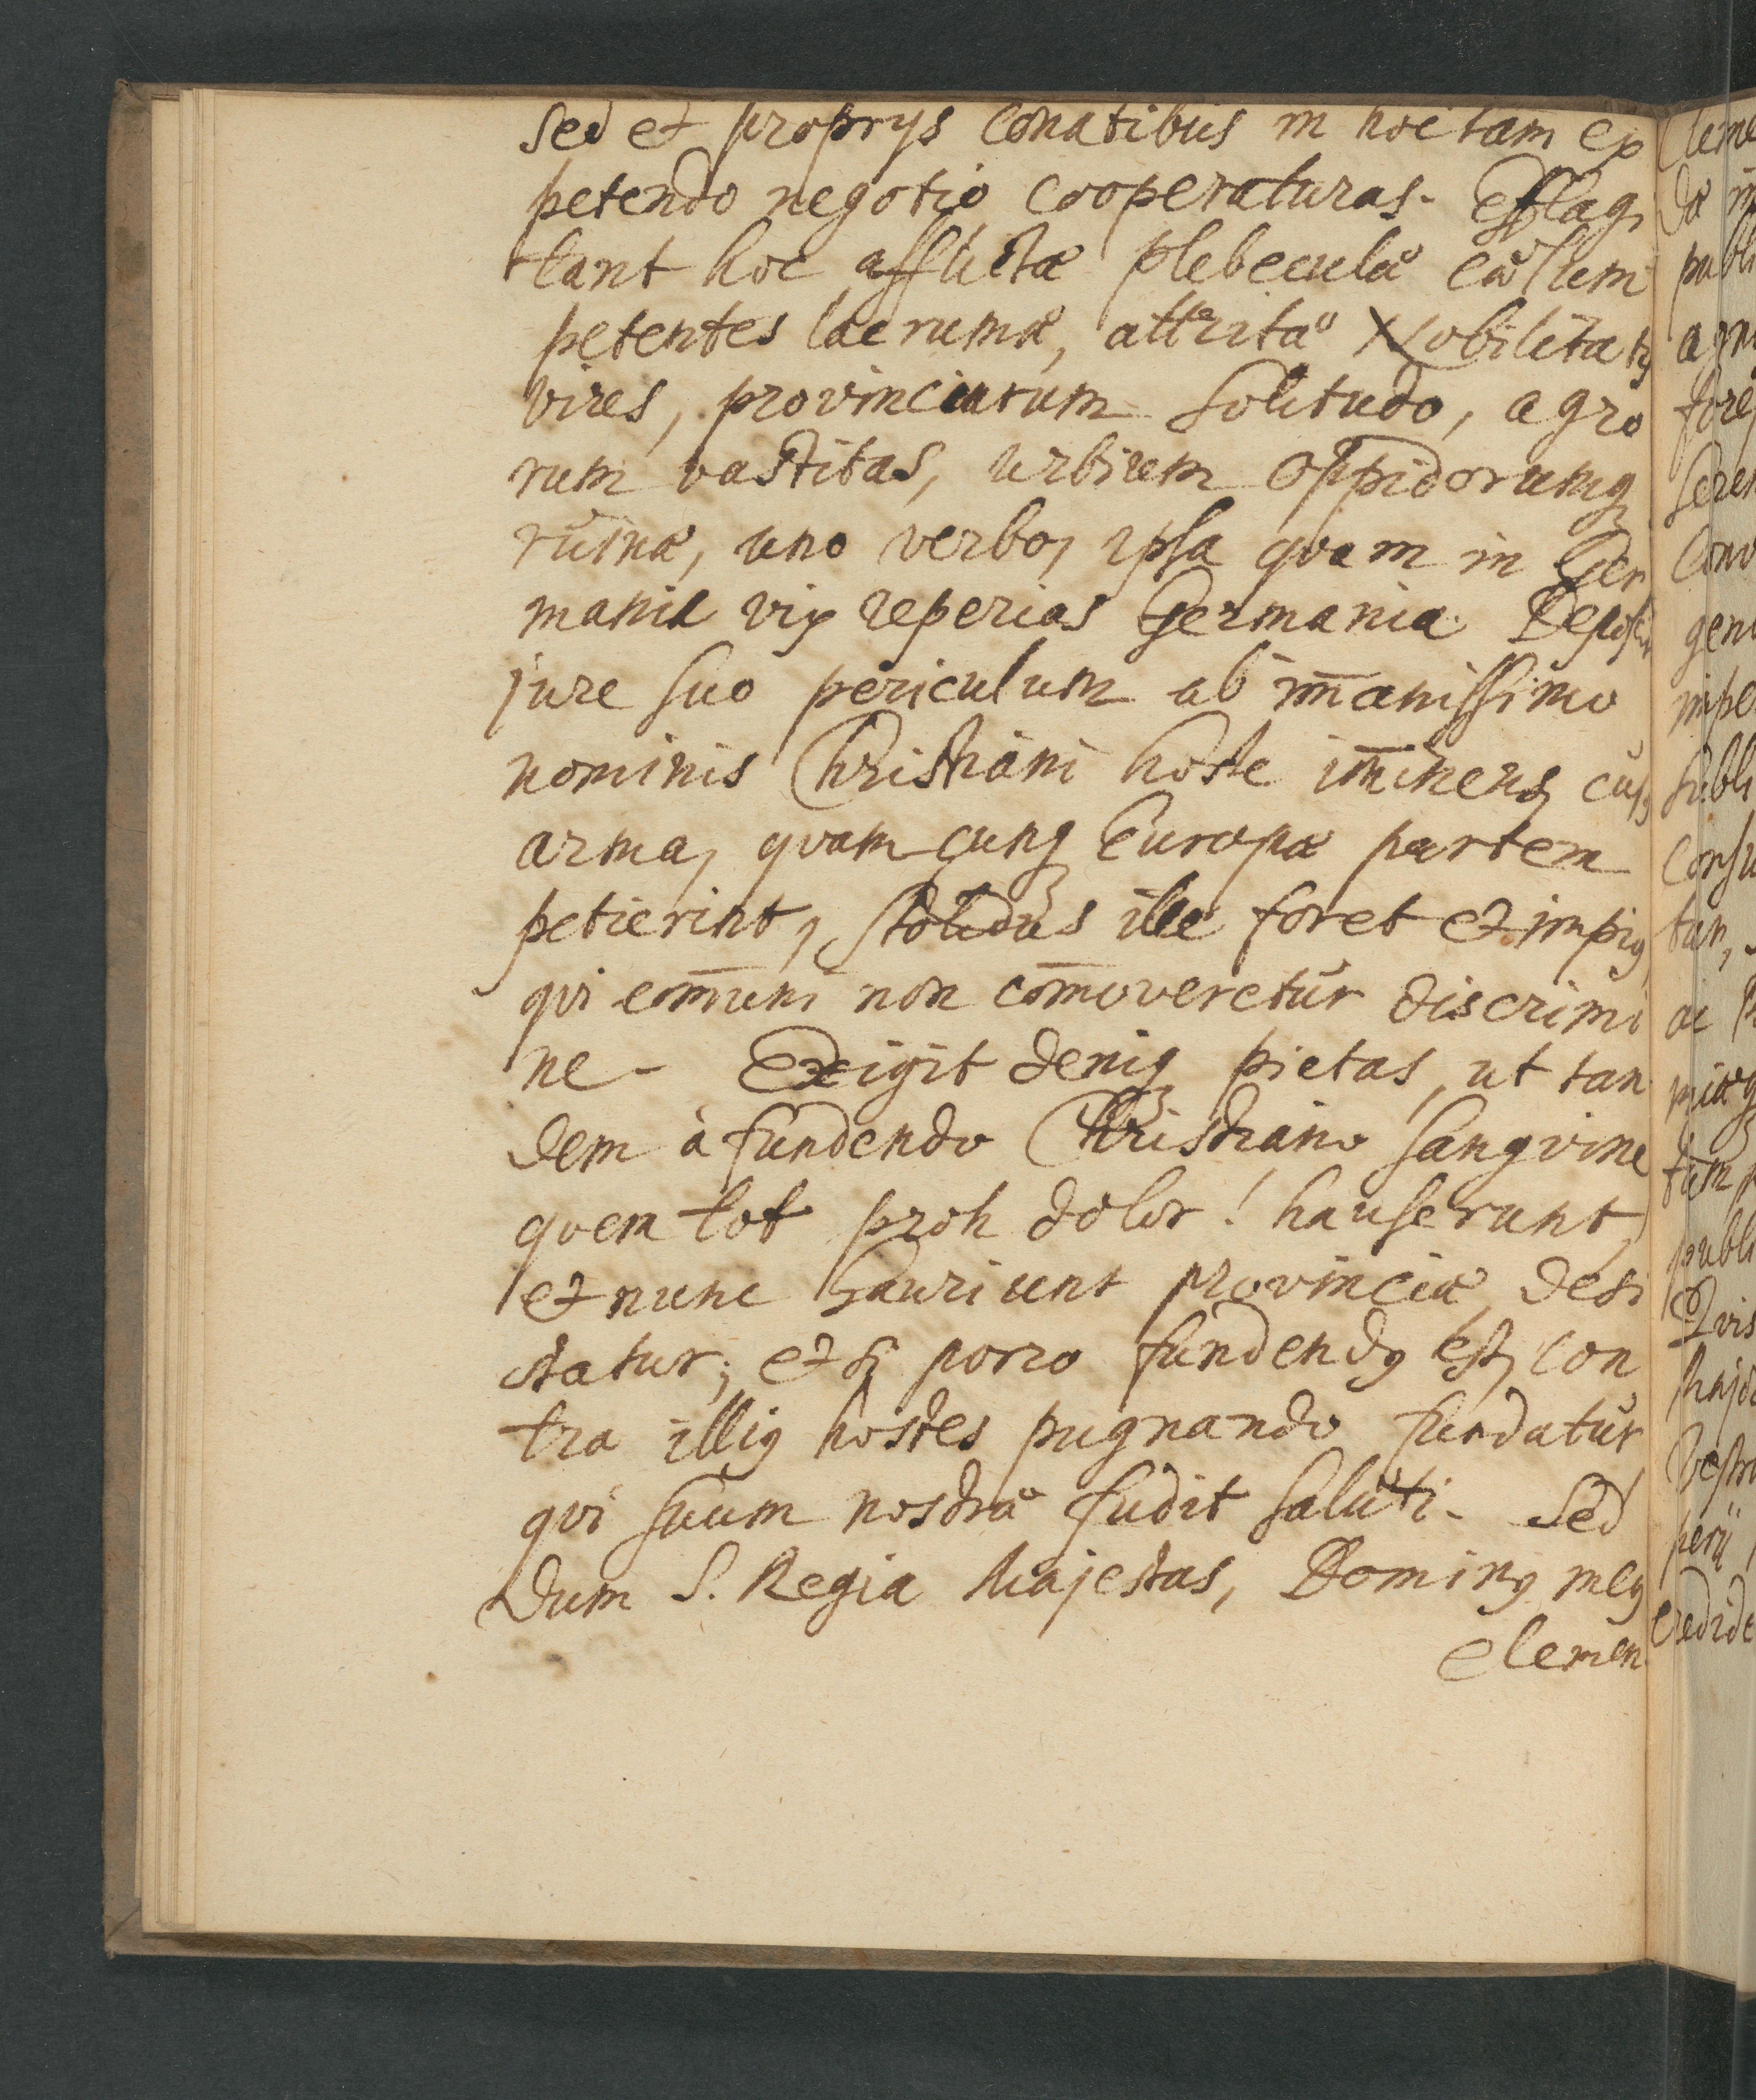 sed et proprys conatibus in hoc tam ex
petendo negotio cooperaturas. Efflagi
tant hoc afflictæ plebeculæ cœlum
petentes lacrumæ, attritæ Nobilitatis
vires, provinciarum solitudo, agro
rum vastitas, urbium oppidorumq;
ruinæ, uno verbo, ipsa qvam in Ger
mania vix reperias Germania. Deposcit
jure suo periculum ab im̄anissimo
nominis Christiani hoste im̄inens, cujus
arma, qvamcunq; Europæ partem
petierint, stolidus ille foret et impius,
qvi com̄uni non com̄overetur discrimi
ne. Exigit deniq; pietas, ut tan
dem à fundendo Christiano sangvine
qvem tot proh dolor! hauserunt,
et nunc hauriunt provinciæ, desi
statur; et si porro fundendus est, con
tra illius hostes pugnando fundatur
qvi suum nostræ fudit saluti. Sed
Dum S. Regia Majestas, Dominus meus
Clemen